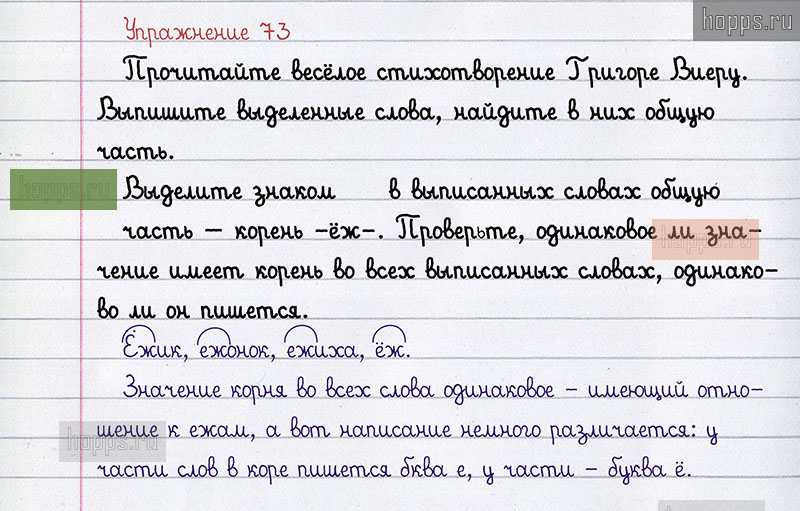 hopps.ru
Упражнение 73
Прочитайте весёлое стихотворение Григоре Виеру.
Выпишите выделенные слова, найдите в них общую
часть.
hopps.ru
Выделите знаком в выписанных словах общую
часть – корень -ёж-. Проверьте, одинаковое ли зна-
hopps.ru
чение имеет корень во всех выписанных словах, одинако-
во ли он пишется.
Ёжик, ежонок, ежиха, ёж.
Значение корня во всех слова одинаковое – имеющий отно-
шение к ежам, а вот написание немного различается: у
hopps.ru
части слов в коре пишется бква е, у части – буква ё.